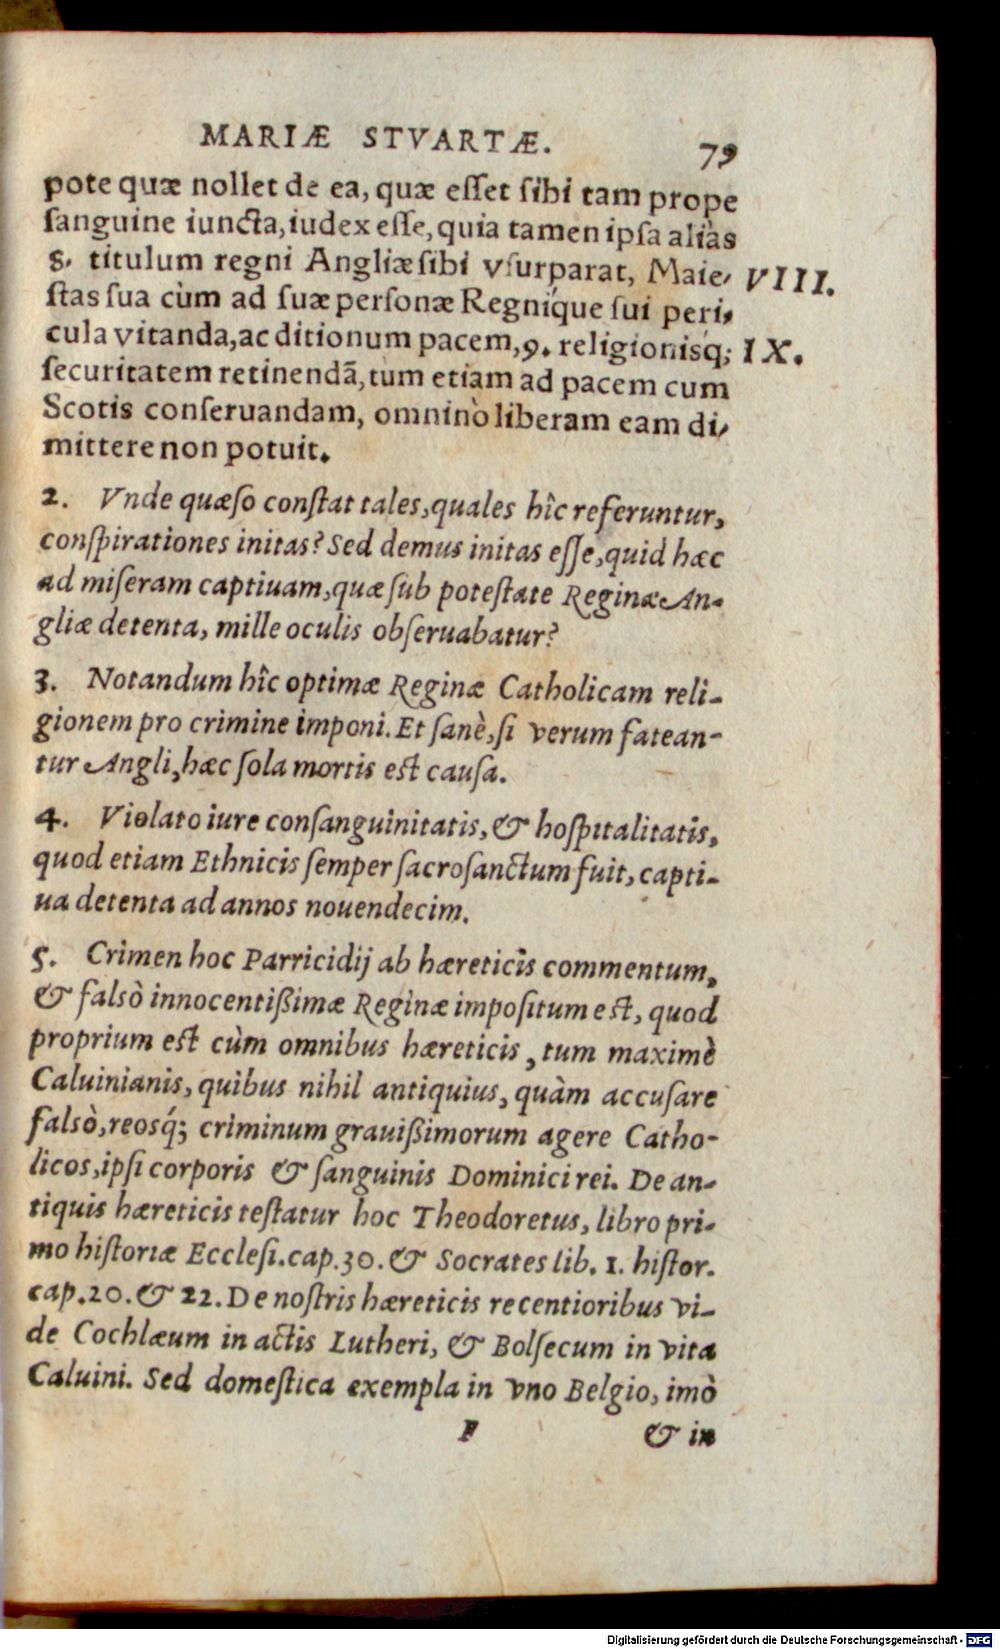 MARIÆ STVARTÆ. 79
pote quæ nollet de ea, quæ eſſet ſibi tam prope
ſanguine iuncta, iudex eſſe, quia tamen ipſa aliàs
8. titulum regni Angliæ ſibi vſurparat, Maie- VIII.
ſtas ſua cùm ad ſuæ perſonæ Regniq́ue ſui peri-
cula vitanda, ac ditionum pacem, 9. religionisq́; IX.
ſecuritatem retinendã, tùm etiam ad pacem cum
Scotis conſeruandam, omninò liberam eam di-
mittere non potuit.
2. Vnde quæſo conſtat tales, quales hîc referuntur,
conſpirationes initas? Sed demus initas eſſe, quid hæc
ad miſeram captiuam, quæ ſub poteſtate Reginæ An-
gliæ detenta, mille oculis obſeruabatur?
3. Notandum hîc optimæ Reginæ Catholicam reli-
gionem pro crimine imponi. Et ſanè, ſi verum fatean-
tur Angli, hæc ſola mortis eſt cauſa.
4. Violato iure conſanguinitatis, & hoſpitalitatis,
quod etiam Ethnicis ſemper ſacroſanctum fuit, capti-
ua detenta ad annos nouendecim.
5. Crimen hoc Parricidij ab hæreticis commentum,
& falsò innocentißimæ Reginæ impoſitum eſt, quod
proprium eſt cùm omnibus hæreticis, tum maximè
Caluinianis, quibus nihil antiquius, quàm accuſare
falsò, reosq́; criminum grauißimorum agere Catho-
licos, ipſi corporis & ſanguinis Dominici rei. De an-
tiquis hæreticis teſtatur hoc Theodoretus, libro pri-
mo hiſtoriæ Eccleſi. cap. 30. & Socrates lib. 1. hiſtor.
cap. 20. & 22. De noſtris hæreticis recentioribus vi-
de Cochlæum in actis Lutheri, & Bolſecum in vita
Caluini. Sed domeſtica exempla in vno Belgio, imò
F & in
Digitalisierung gefördert durch die Deutsche Forschungsgemeinschaft - DFG